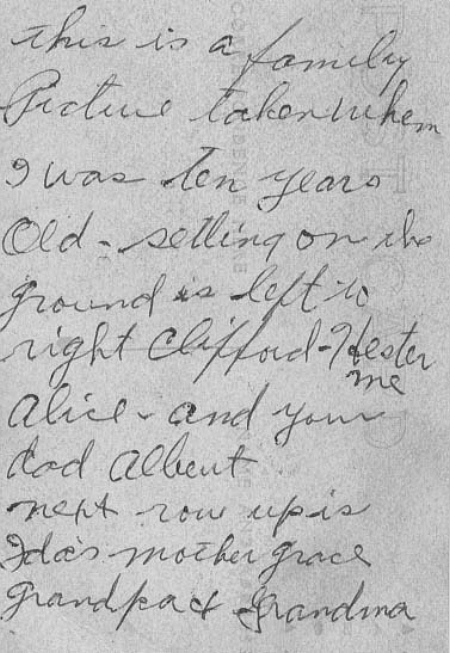 this is a family
Picture taken when
I was ten years
Old - setting on the
ground is left to
right Clifford - Hester
me
Alice - and your
dad Albert
next row up is
Ida's mother grace
grandpa & grandma
POST CARD
CORRESPONDENCE HERE